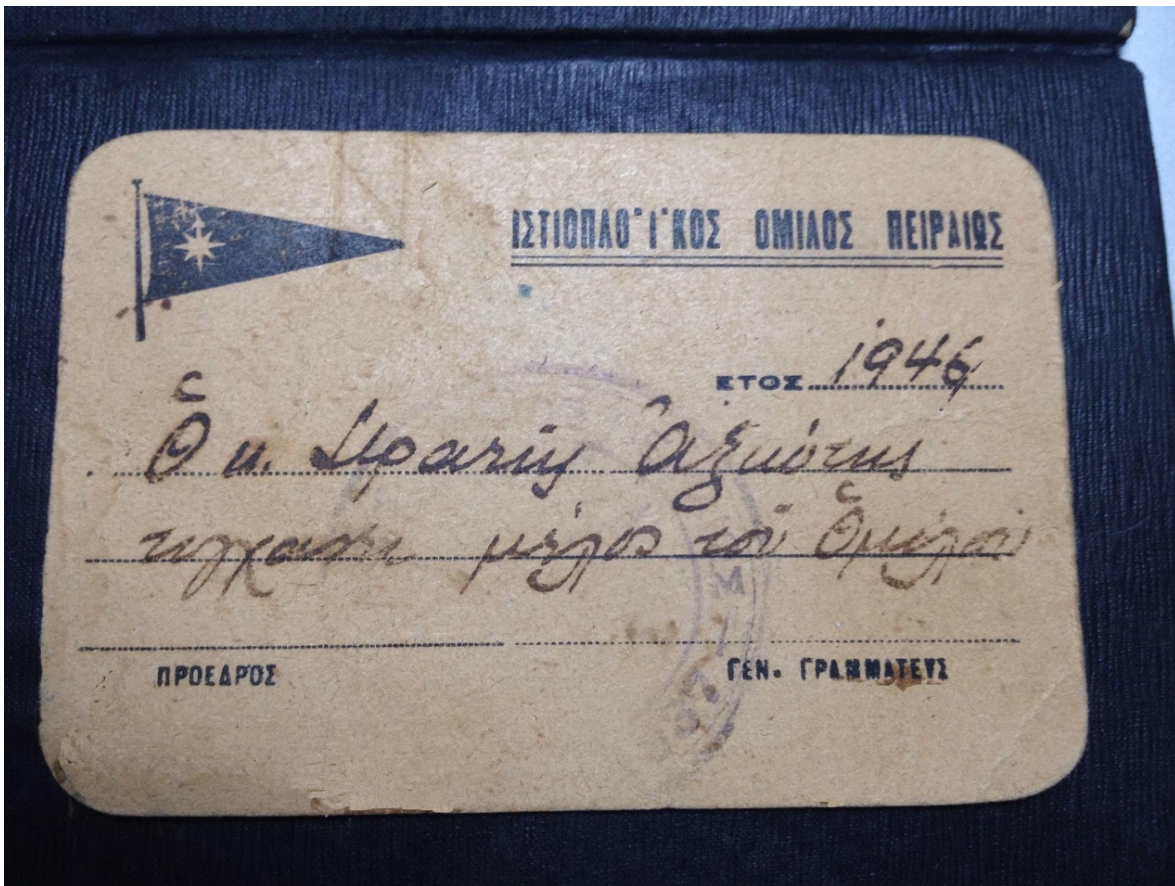 ΙΣΤΙΟΠΛΟ·Ι·ΚΟΣ ΟΜΙΛΟΣ ΠΕΙΡΑΙΩΣ
ΕΤΟΣ 1946
Ὁ κ. Στρατής Ἀξιώτης
τυγχάνει μέλος τοῦ Ὁμίλου
ΠΡΟΕΔΡΟΣ
ΓΕΝ. ΓΡΑΜΜΑΤΕΥΣ